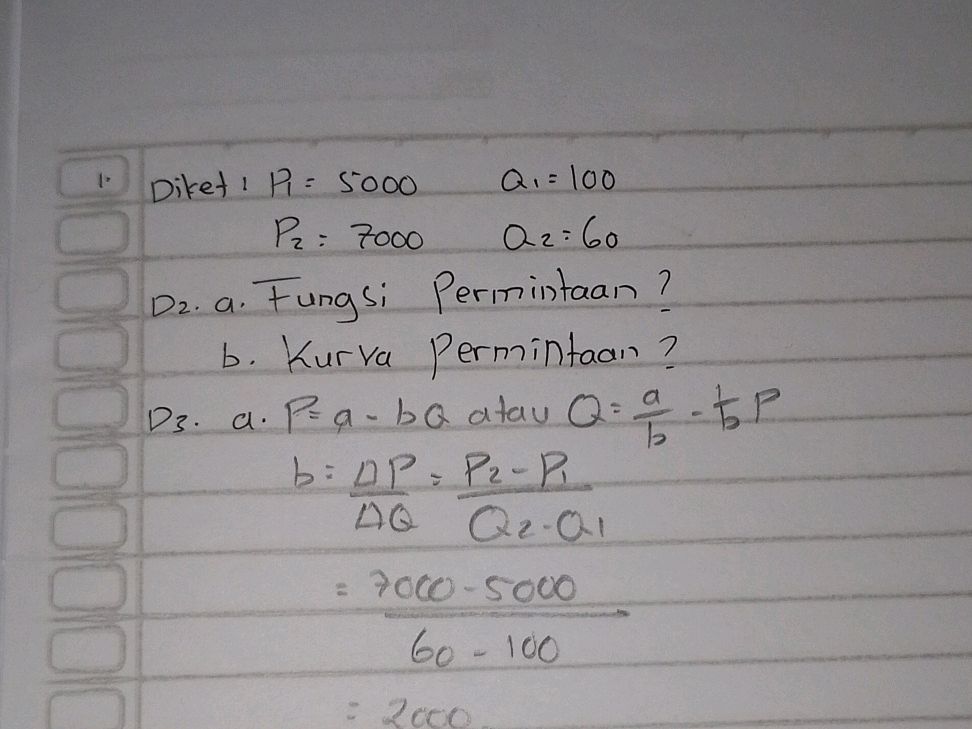 1. Diket : P1 = 5000 Q1 = 100
P2 = 7000 Q2 = 60
D2. a. Fungsi Permintaan ?
b. Kurva Permintaan ?
D3. a. P = a - bQ atau Q = a/b - 1/b P
b = ΔP/ΔQ = P2 - P1 / Q2 - Q1
= 7000 - 5000
60 - 100
= 2000